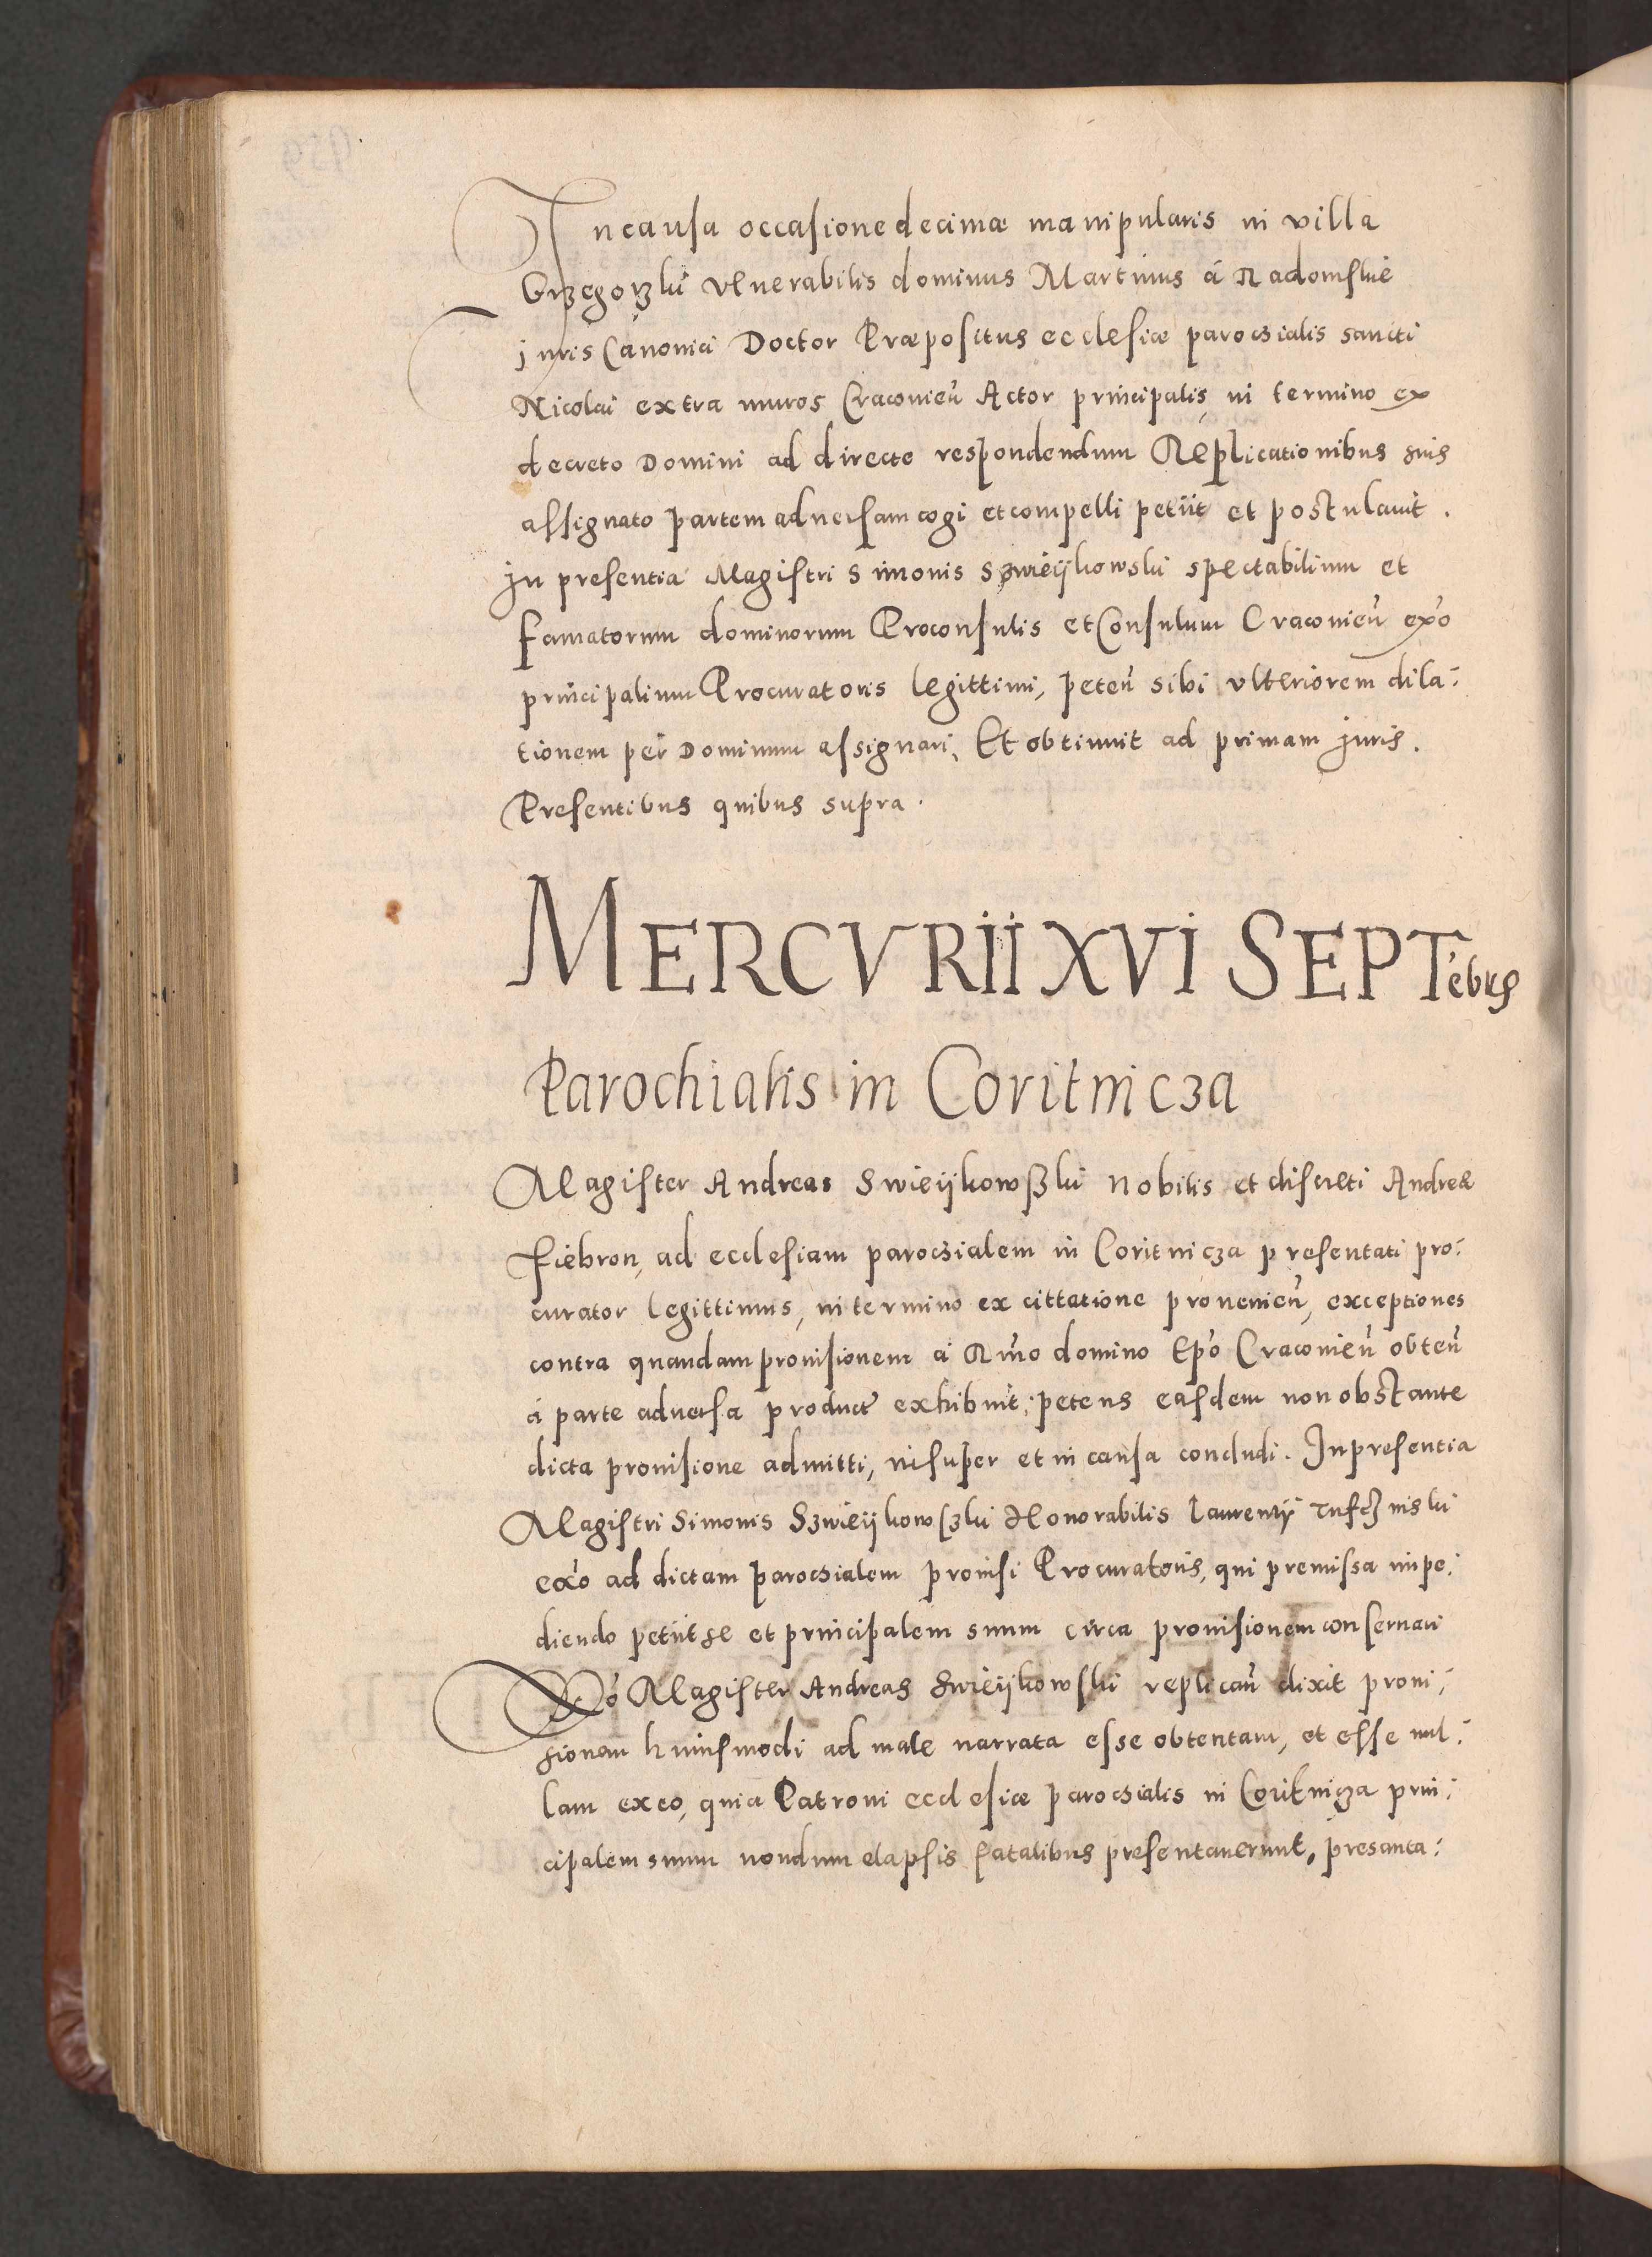 In causa occasione decimæ manipularis in villa
Grzegorzki venerabilis dominus Martinus á Radomskie
juris Canonici Doctor Præpositus ecclesiæ parochialis sancti
Nicolai extra muros Cracovień Actor principalis in termino ex
decreto Domini ad directe respondendum Replicationibus suis
assignato partem adversam cogi et compelli petiit et postulavit.
In presentia Magistri Simonis Szwieijkowski spectabilium et
famatorum dominorum Proconsulis et Consulum Cracovień exo
principalium Procuratoris legittimi, peteń sibi ulteriorem dila:
tionem per Dominum assignari, Et obtinuit ad primam juris.
Presentibus quibus supra.
MERCVRII XVI SEPTebris
Parochialis in Coritnicza
Magister Andreas Swieijkowszki Nobilis et discreti Andreæ
Fiebron, ad ecclesiam parochialem in Coritnicza presentati pro:
curator legittimus, in termino ex cittatione provenień, exceptiones
contra quandam provisionem á Rmo domino Epo Cracovień obteń
á parte adversa product exhibuit, petens easdem non obstante
dicta provisione admitti, insuper et in causa concludi. In presentia
Magistri Simonis Szwieijkowszki Honorabilis Laurentij
exo ad dictam parochialem provisi Procuratoris, qui premissa impe:
diendo petiit se et principalem suum circa provisionem conservari
Magister Andreas Swieijkowski replicań dixit provi:
sionem huiusmodi ad male narrata esse obtentam, et esse nul:
lam ex eo, quia Patroni ecclesiæ parochialis in Coritnicza prin:
cipalem suum nondum elapsis fatalibus presentaverunt, presenta: